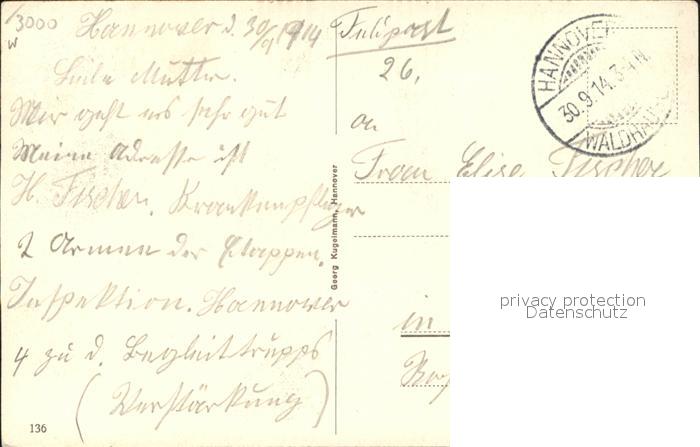 3000
W
Hannover d. 30/9 1914
Liebe Mutter.
Mir geht es sehr gut
Meine Adresse ist
H. Fischer. Krankenpfleger
2 Armee der Etappen.
Inspektion. Hannover
4 zu d. Begleittrupps
(Verstärkung)
136
Georg Kugelmann, Hannover
Feldpost
26.
HANNOVER
30.9.14.
WALDHAUSEN
an
Frau Elise Fischer
in
privacy protection
Datenschutz